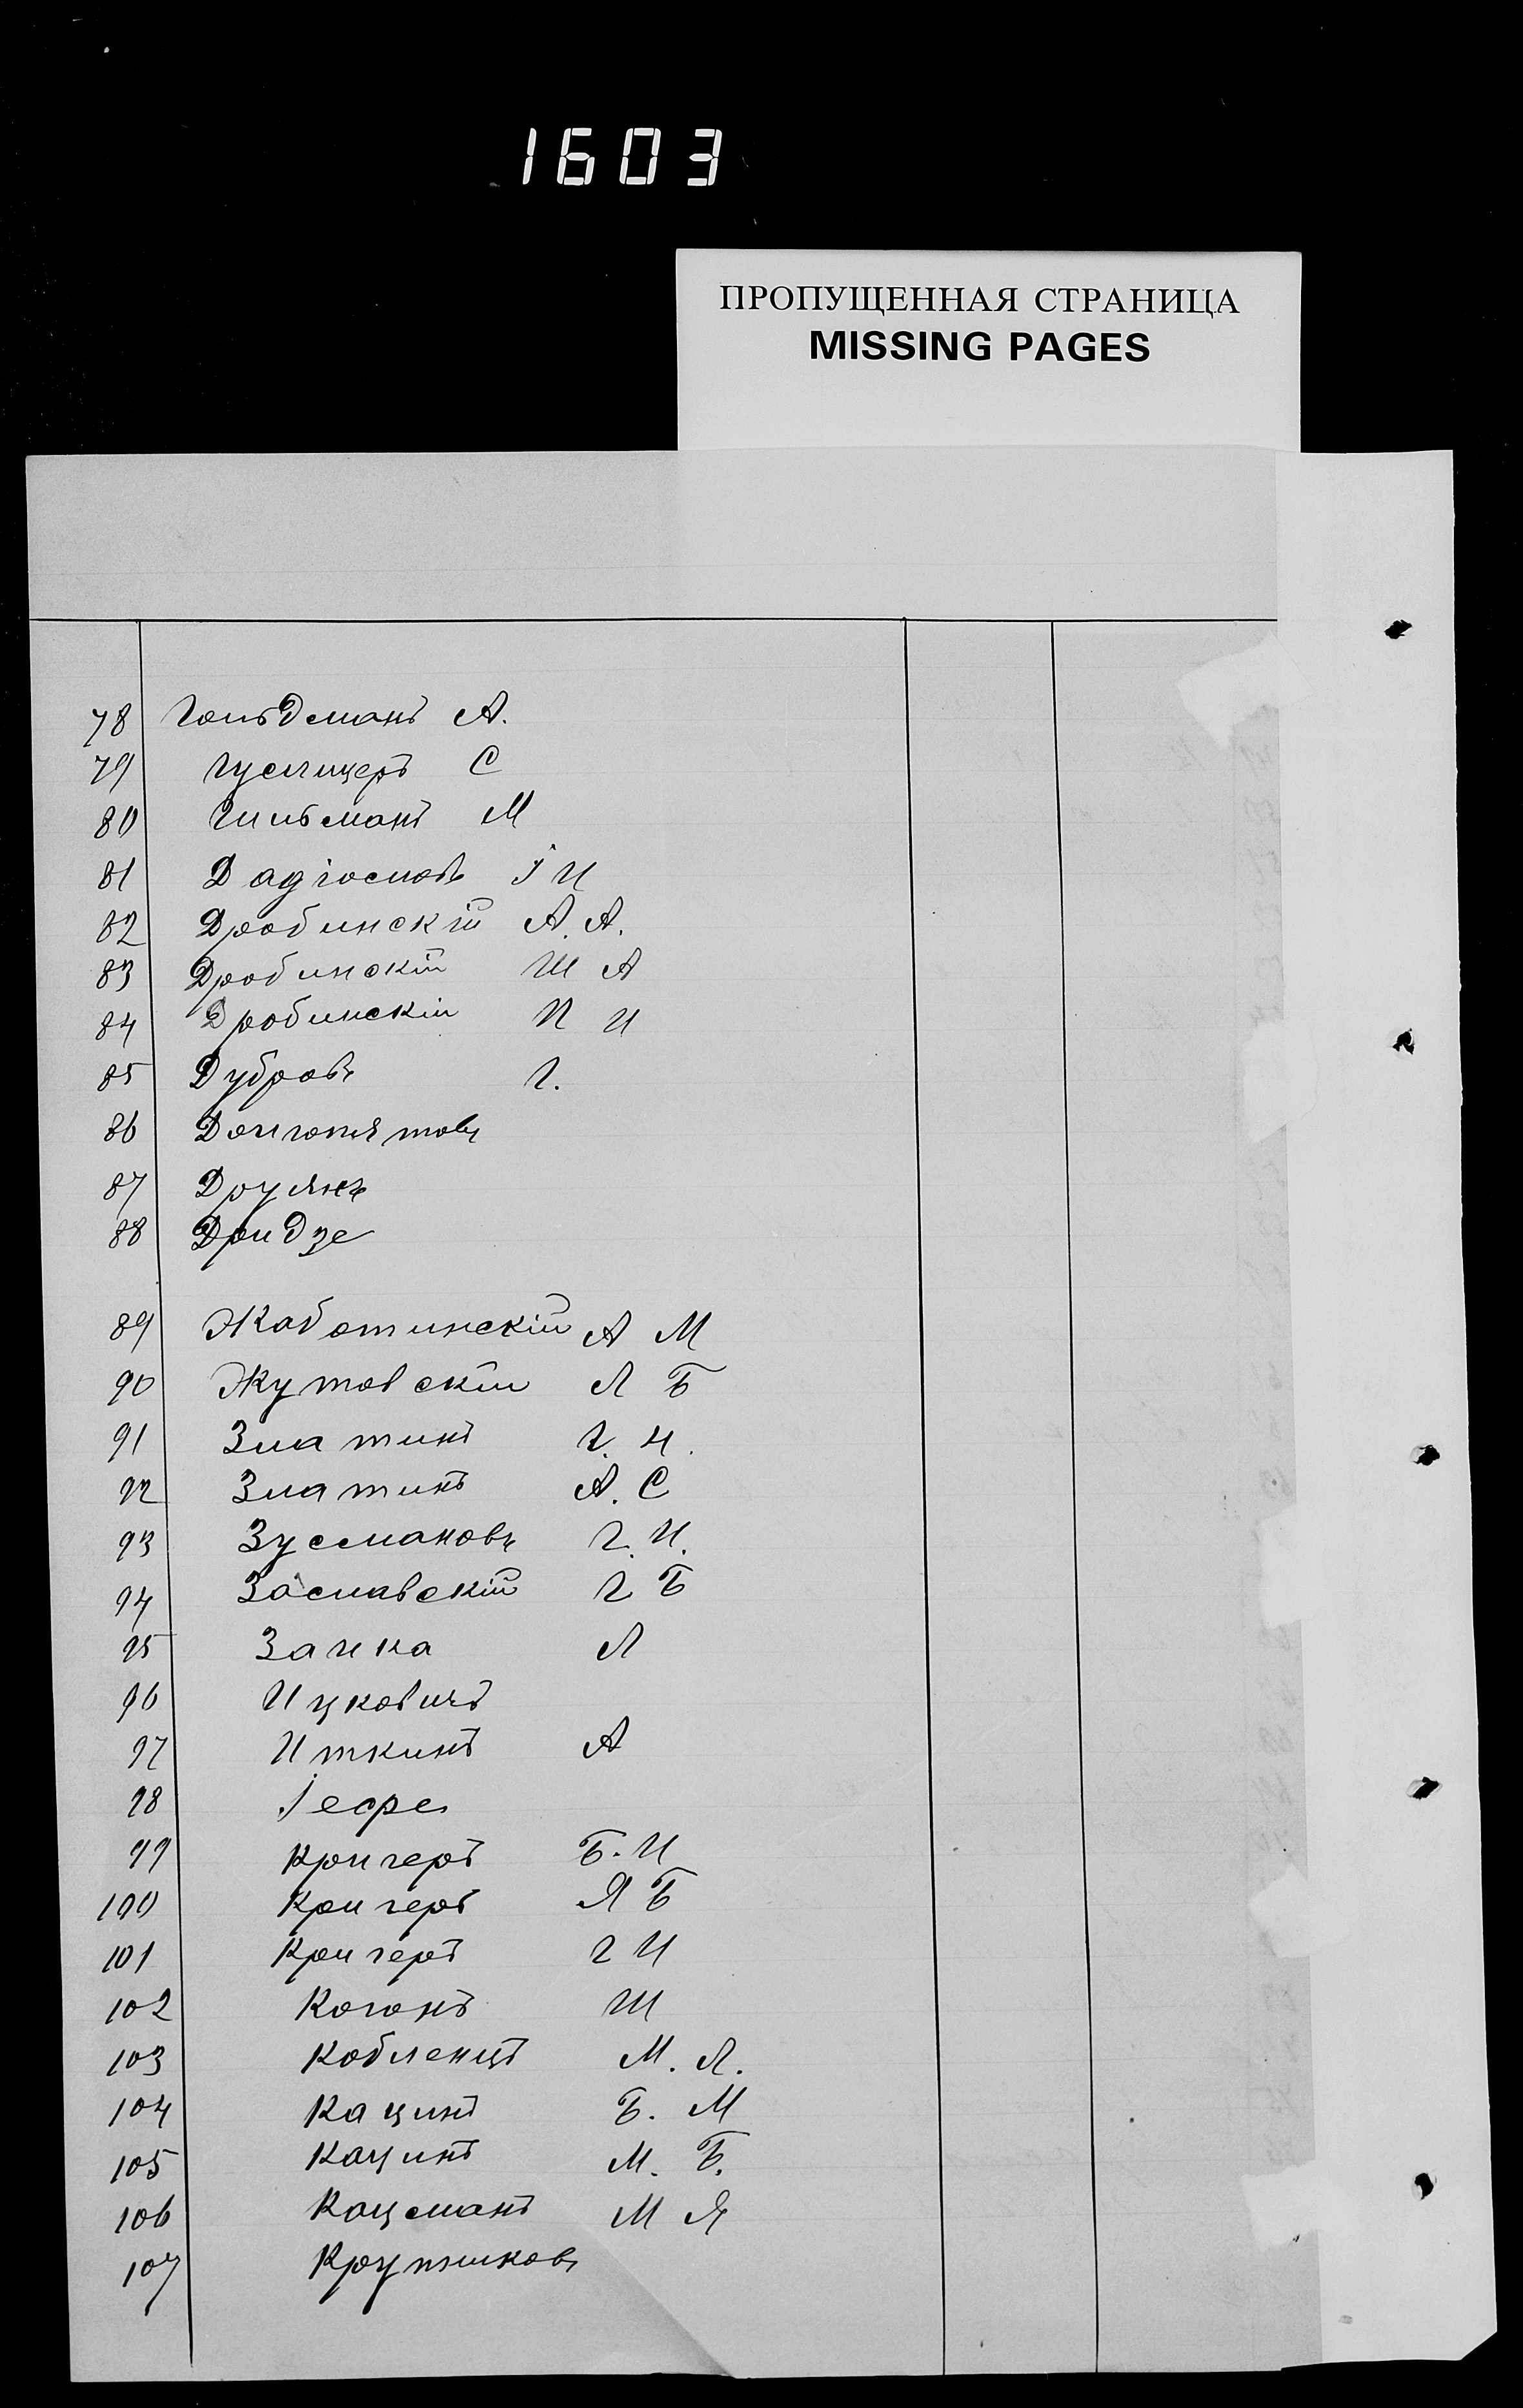 1603
ПРОПУЩЕННАЯ СТРАНИЦА
MISSING PAGES
78 Гольдманъ А.
79 Гуслицеръ С
80 Гильманъ М
81 І И
82 Дробинскій А. А.
83 Дробинскій Ш А
84 Дробинскій И И
85 Дубровъ Г.
86 Долгопятовъ
87 Друянъ
88 Дридзе
89 Жаботинскій А М
90 Жутовскій Л Б
91 Златинъ Г. И.
92 Златинъ А. С
93 Зусмановъ Г. И.
94 Заславскій Г Б
95 Залка Л
96 Ицковичъ
97 Иткинъ А
98
99 Кригеръ Б. И
100 Кригеръ Я Б
101 Кригеръ Г И
102 Коганъ Ш
103 Кобленцъ М. Л.
104 Кацинъ Б. М
105 Кацинъ М. Б.
106 Кацманъ М Я
107 Крупниковъ